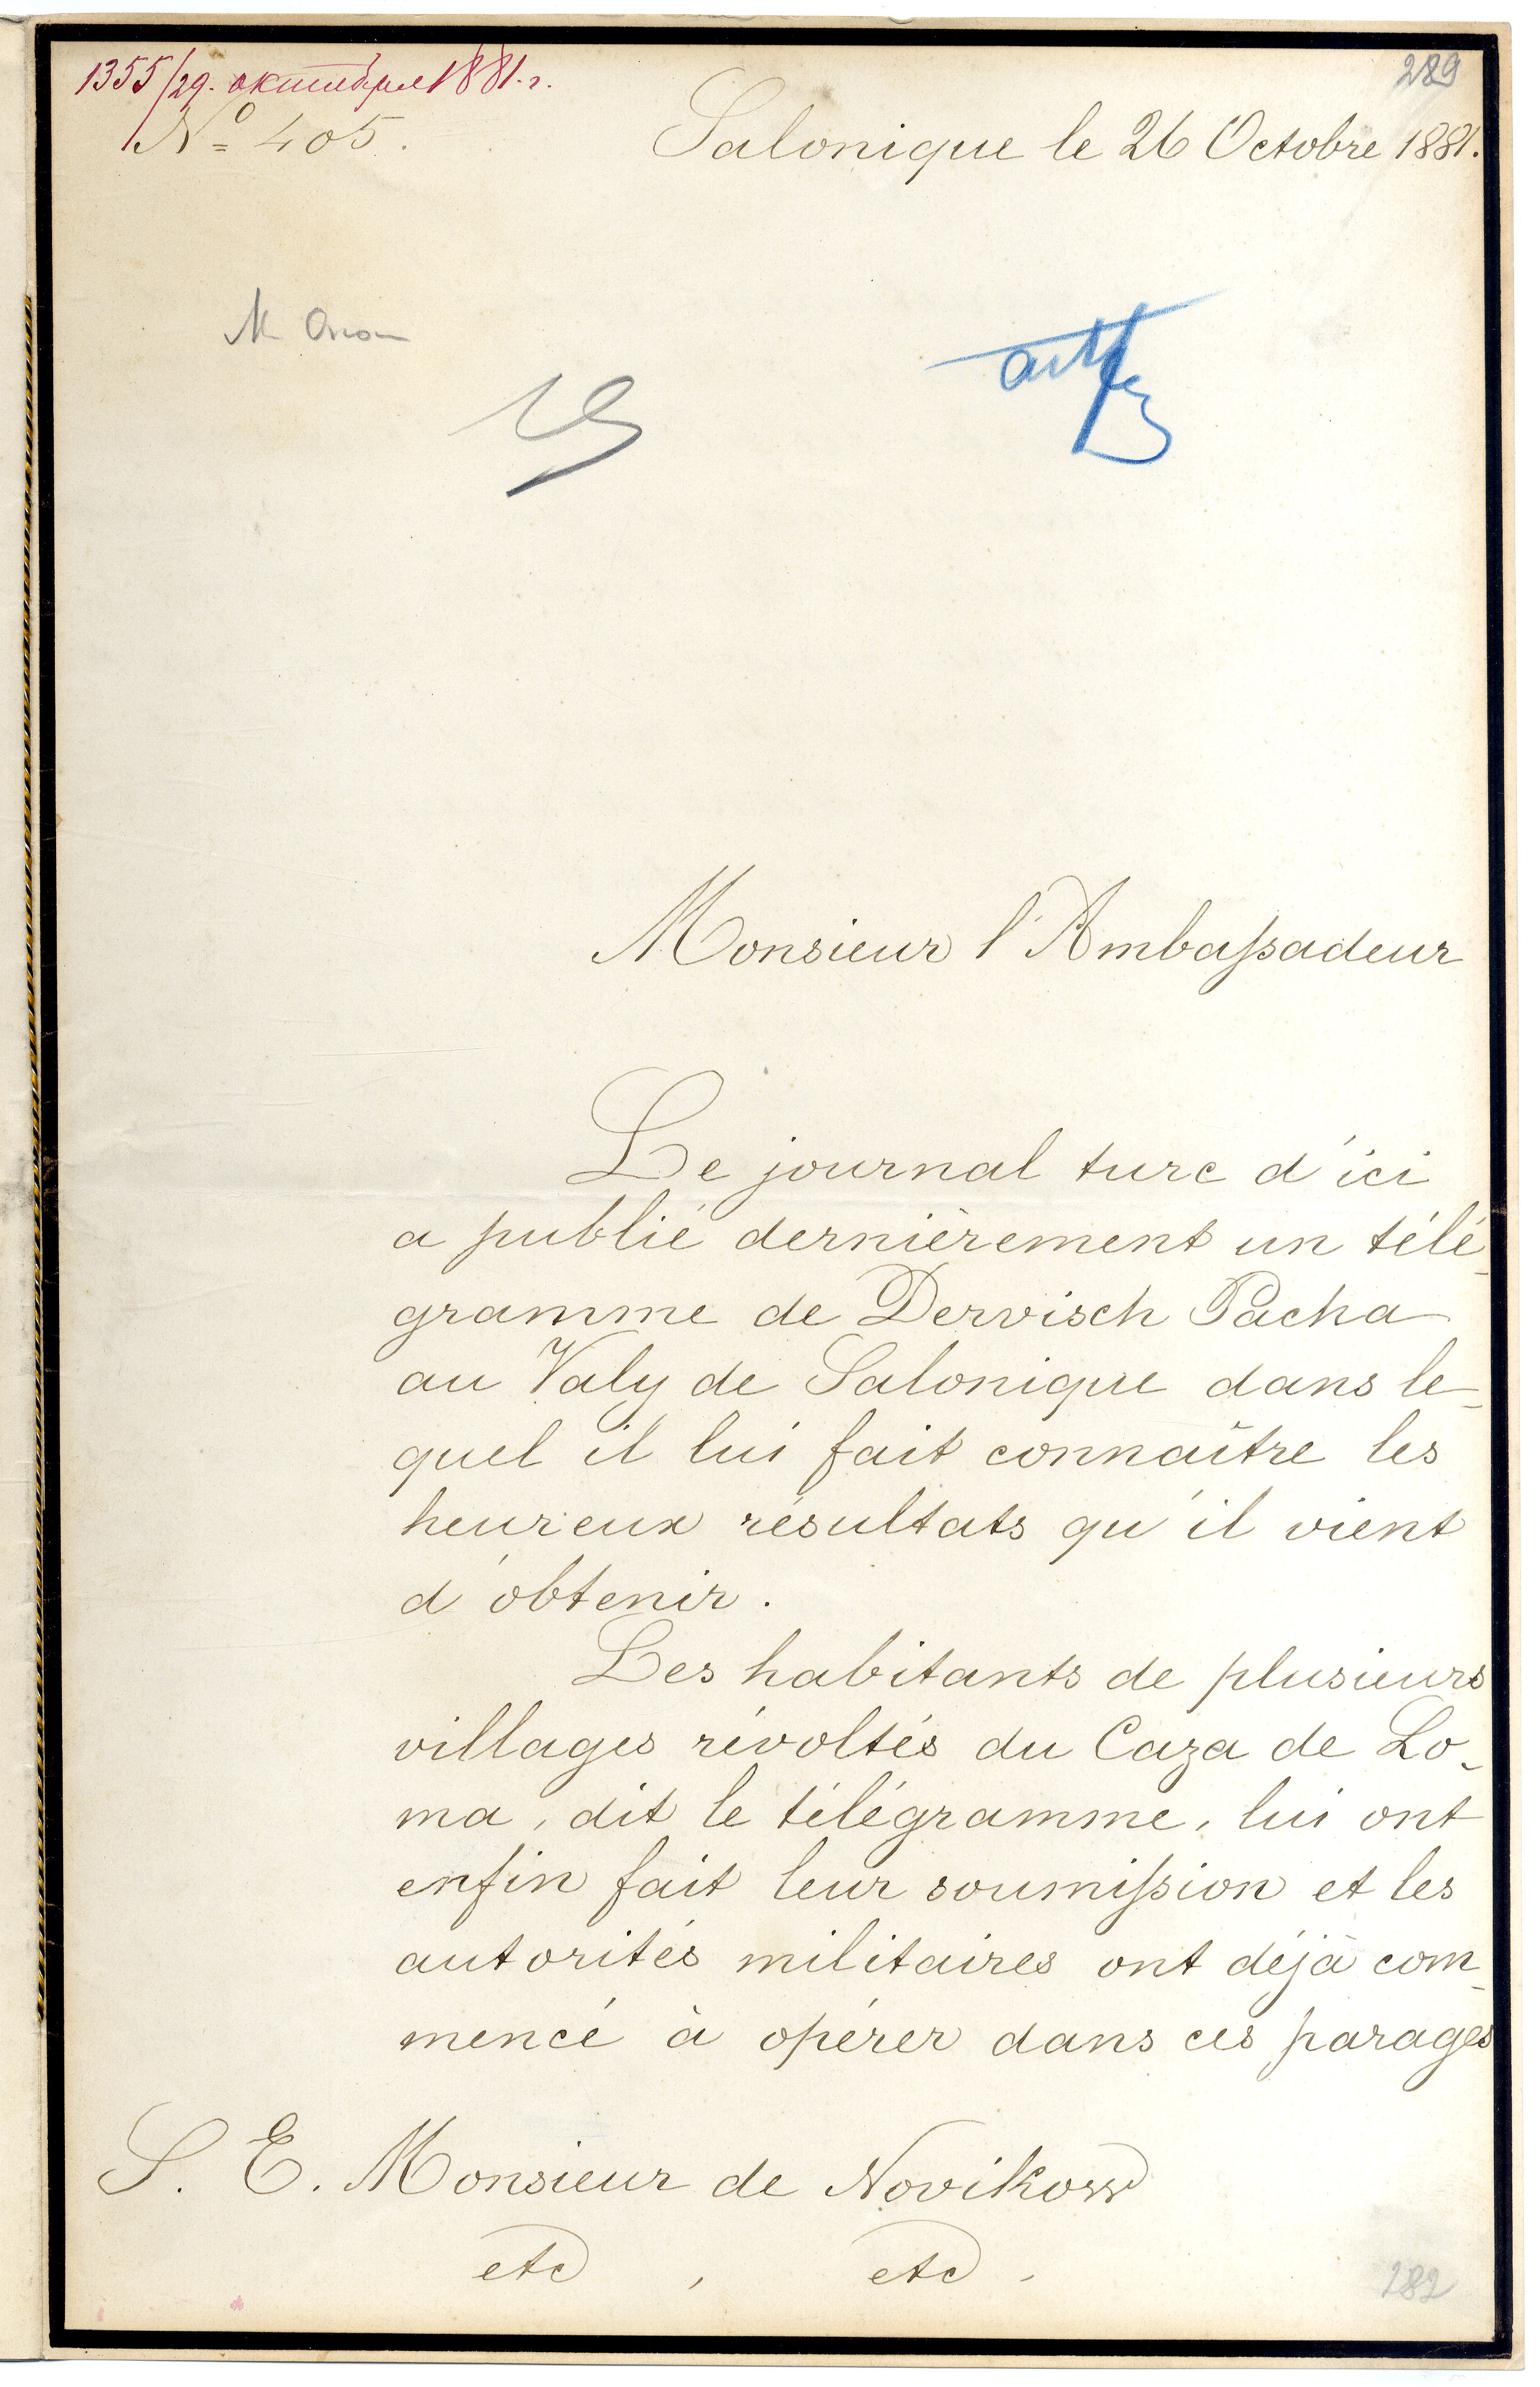 1355/29. октября 1881. г.
289
Nº 405.
Salonique le 26 Octobre 1881.
Monsieur l'Ambassadeur
Le journal turc d'ici
a publié dernièrement un télé-
gramme de Dervisch Pacha
au Valy de Salonique dans le-
quel il lui fait connaître les
heureux résultats qu'il vient
d'obtenir.
Les habitants de plusieurs
villages révoltés du Caza de Lo-
ma, dit le télégramme, lui ont
enfin fait leur soumission et les
autorités militaires ont déjà com-
mencé à opérer dans ces parages
S. E. Monsieur de Novikow
etc, etc.
282